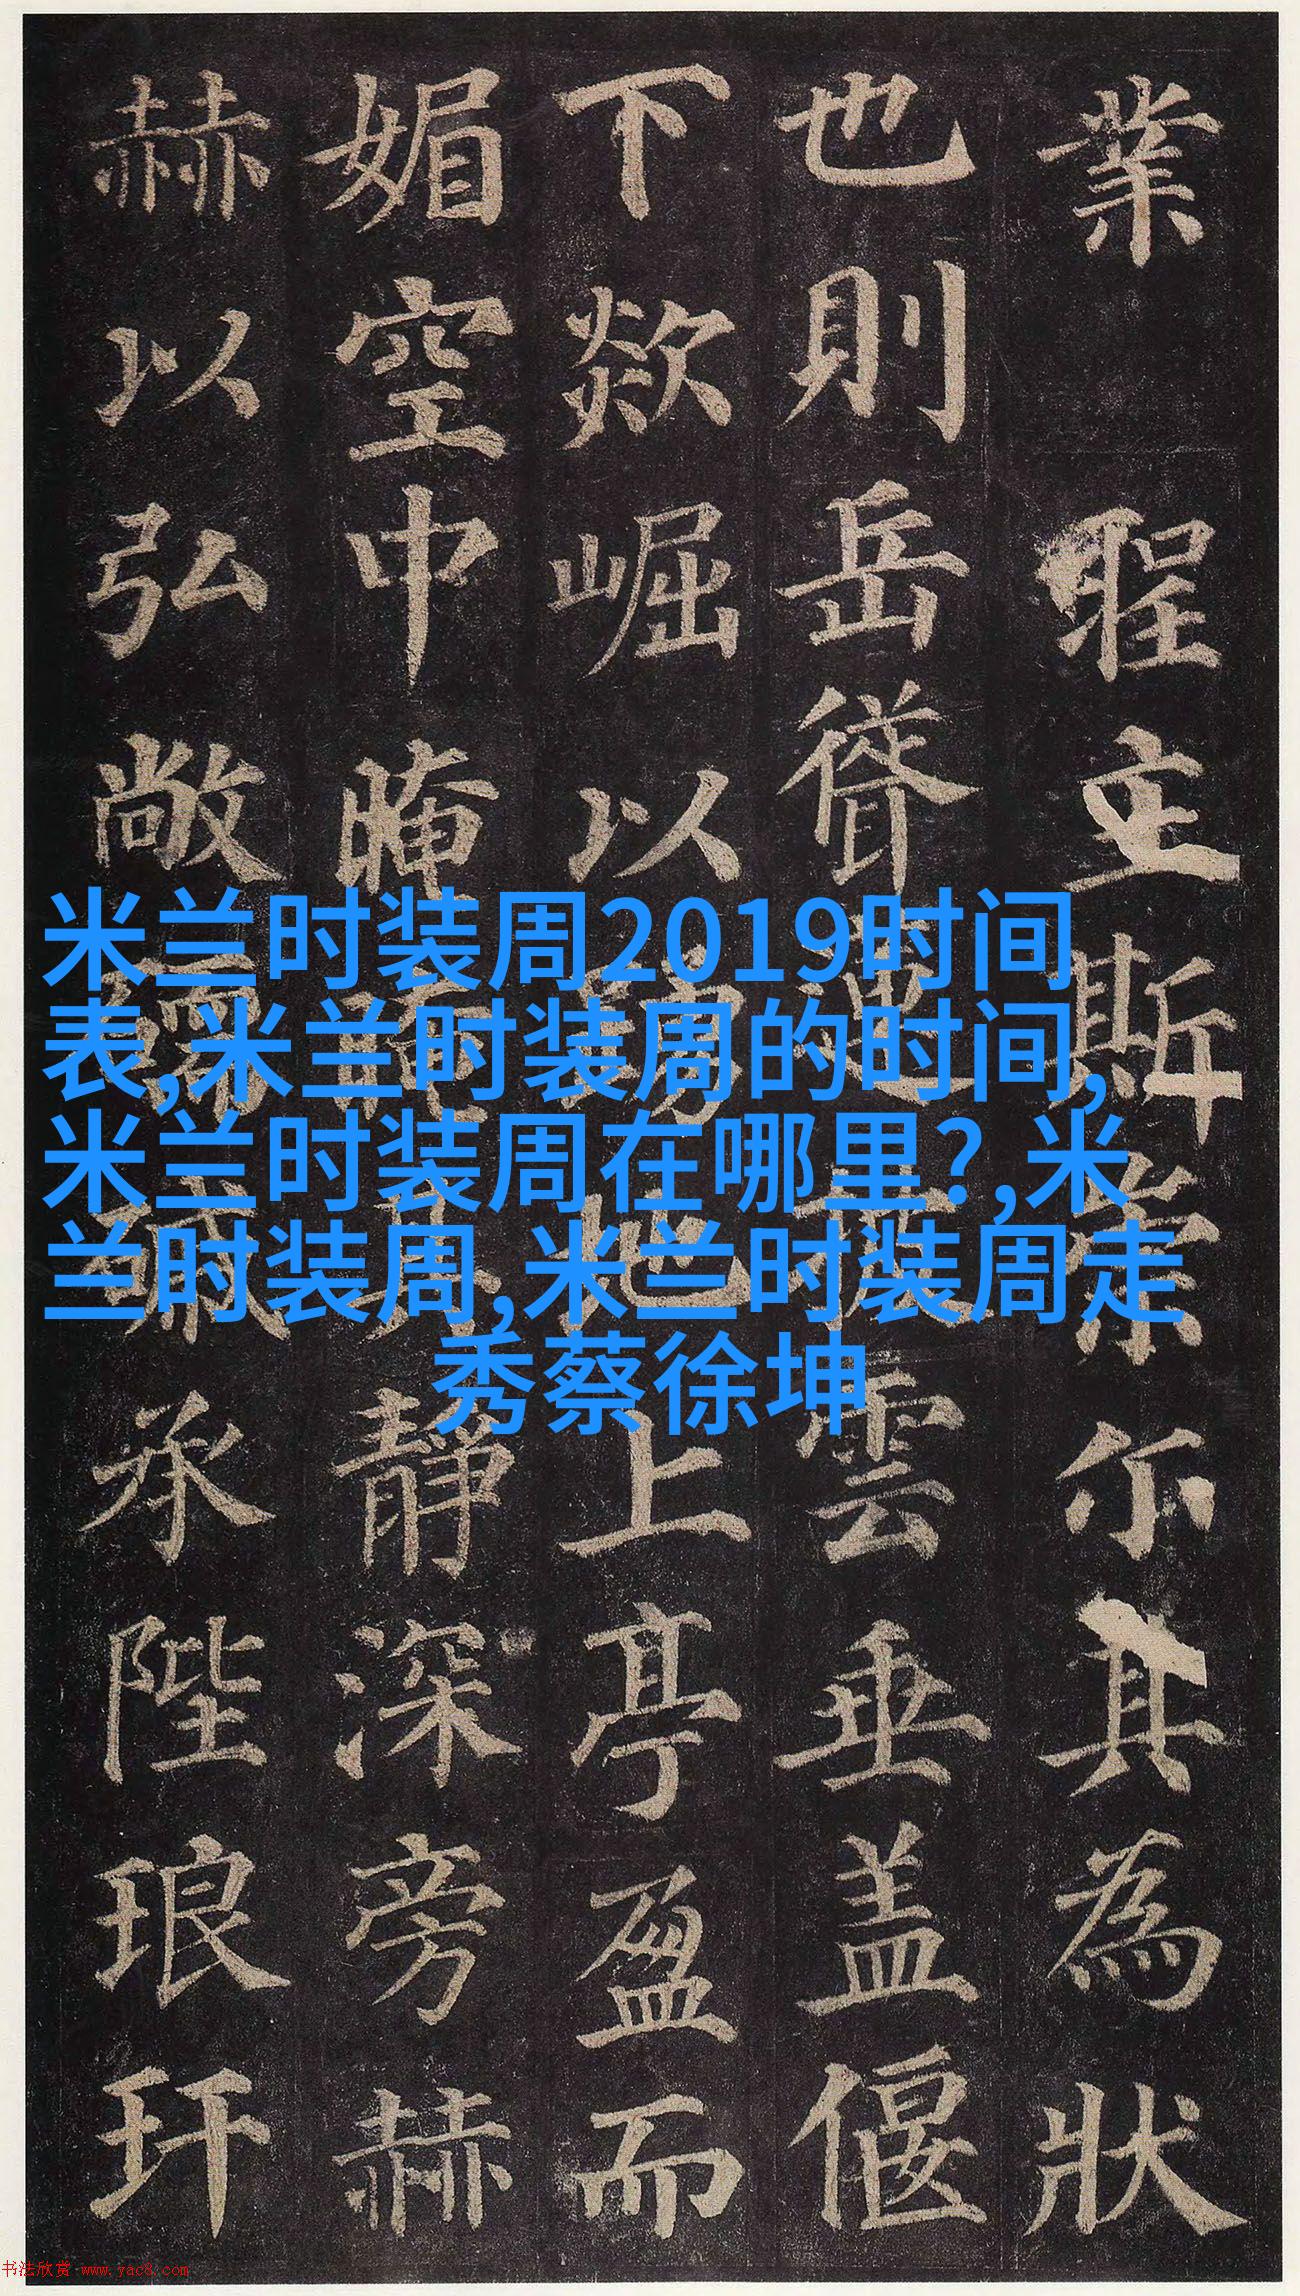 業 立斯尔其為狀
也則岳聳雲垂盖偃
下欻崛以地上亭盈而
媚空中晻靜深旁赫
赫以弘敞承陛琅玕
米兰时装周2019时间
表,米兰时装周的时间,
米兰时装周在哪里?,米
兰时装周,米兰时装周走
秀蔡徐坤
书法欣赏 www.yac8.com